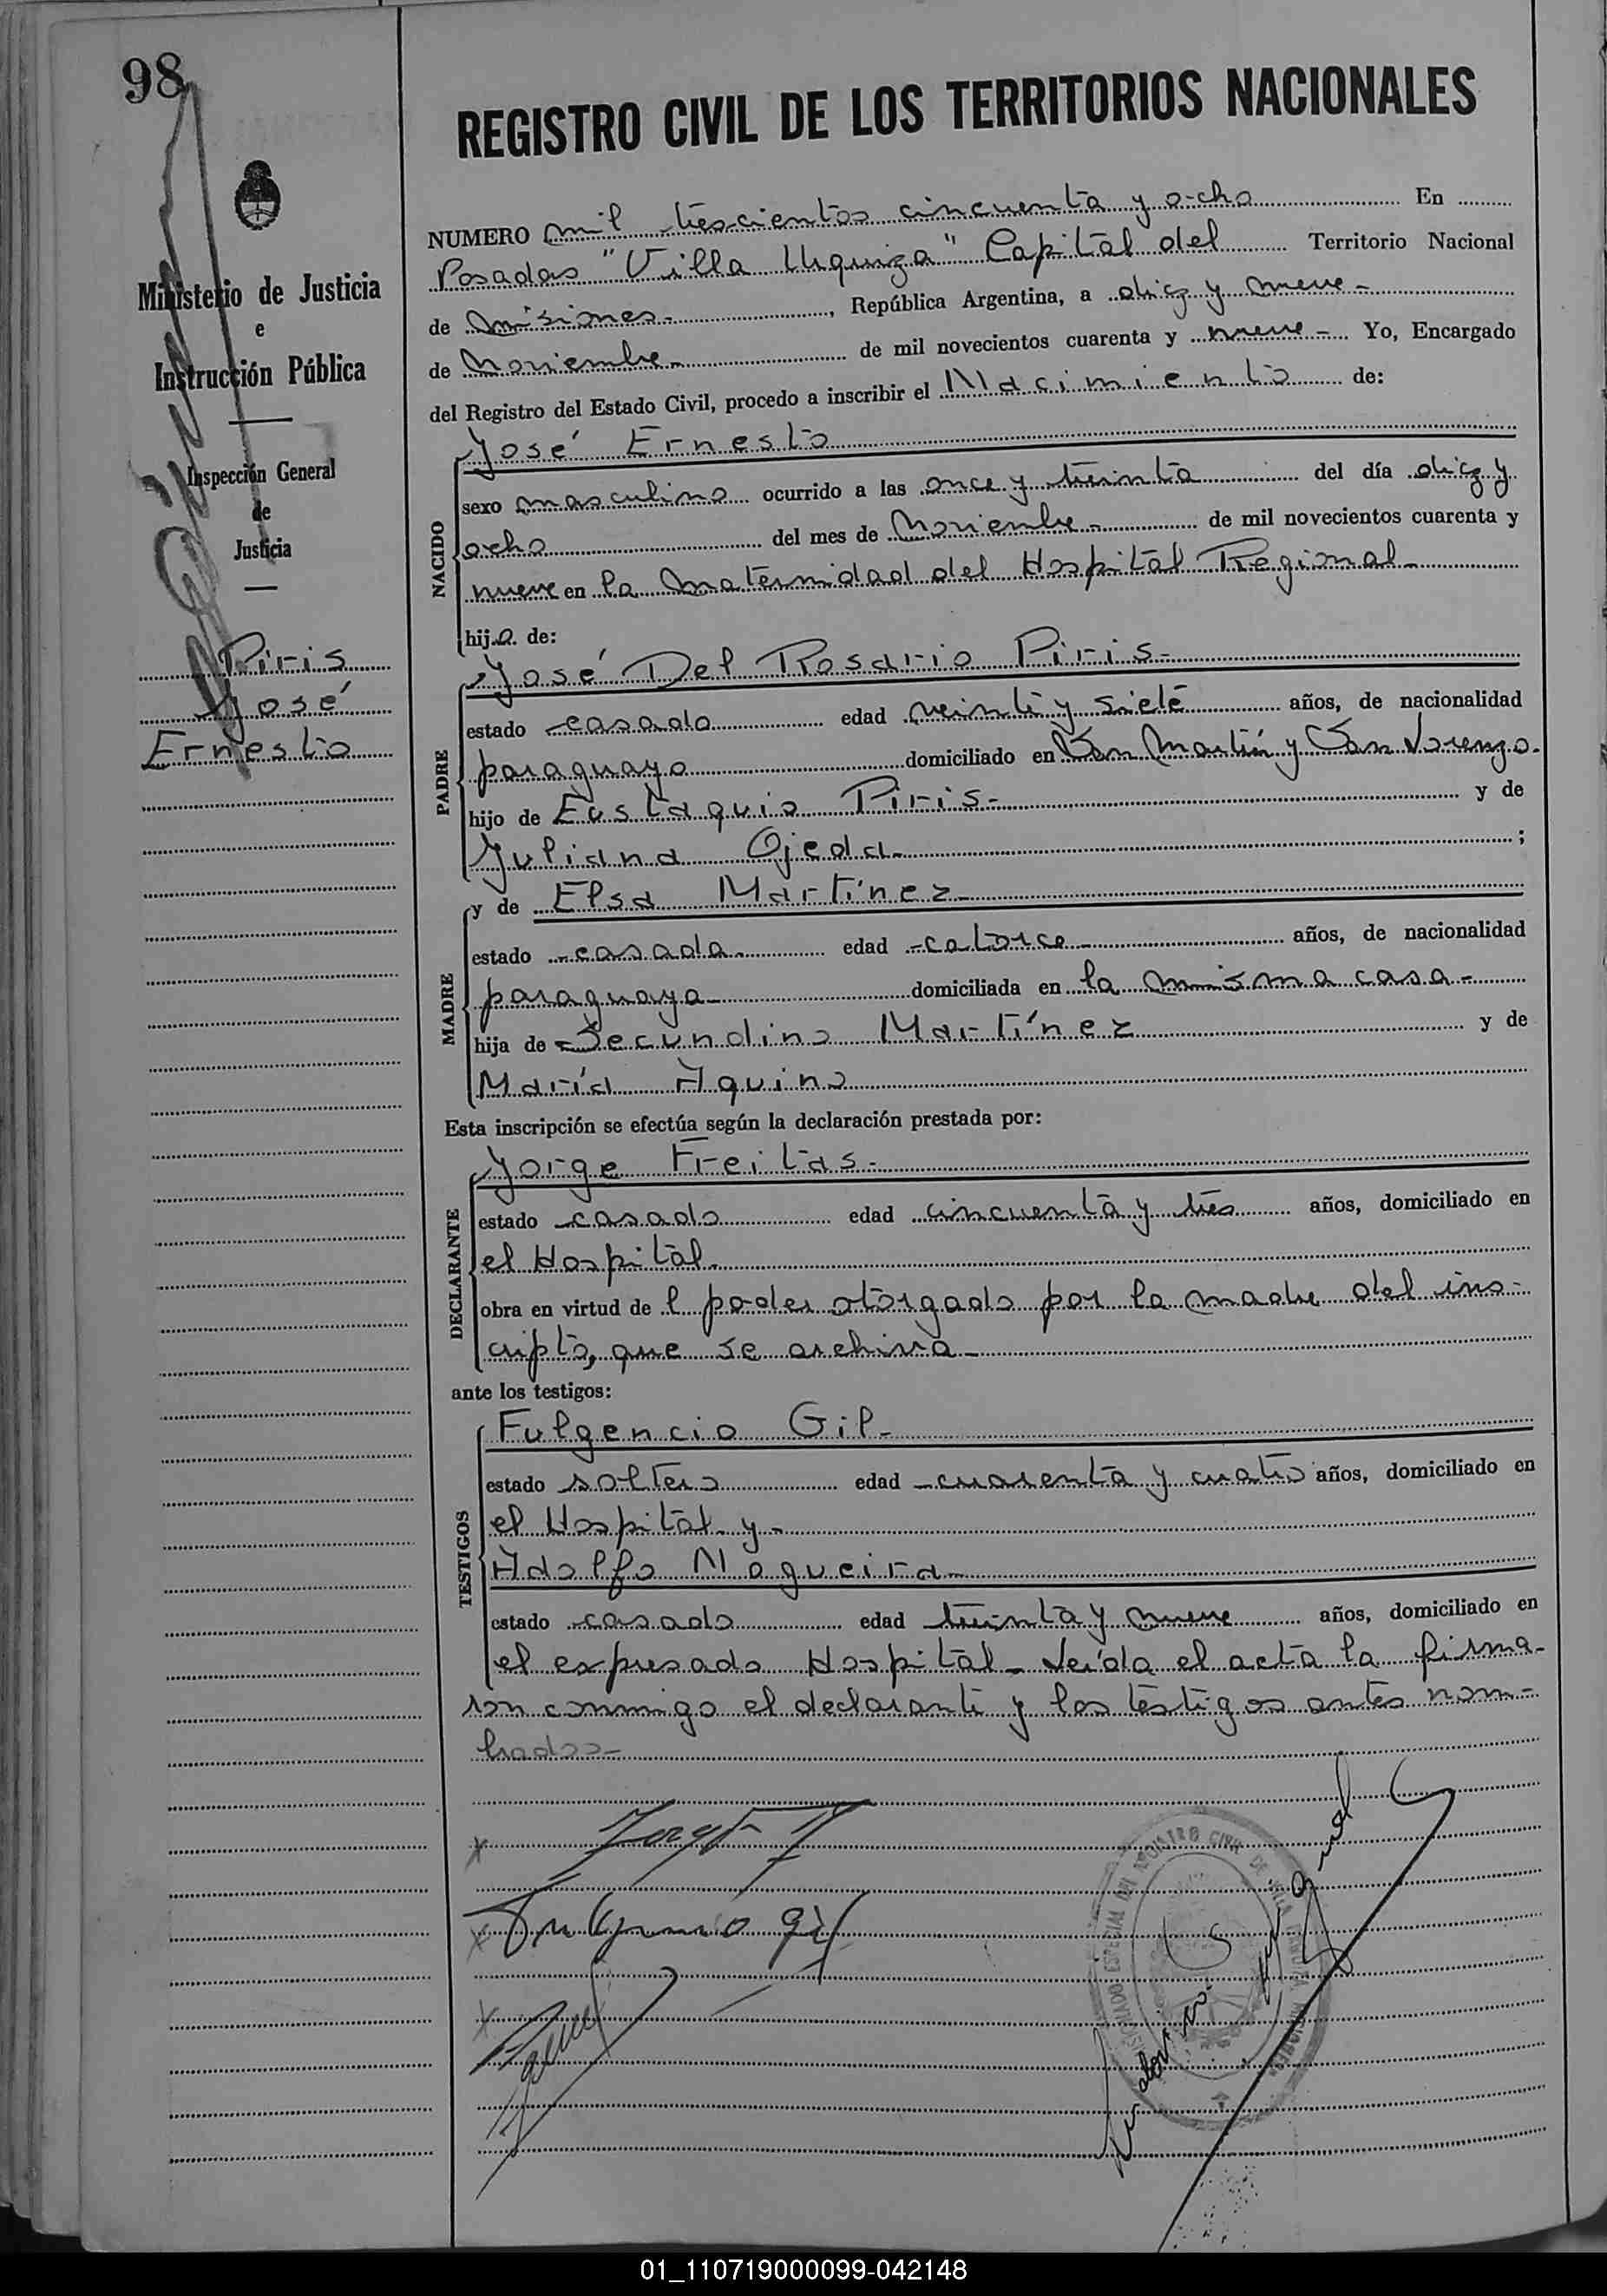 98
REGISTRO CIVIL DE LOS TERRITORIOS NACIONALES
Ministerio de Justicia
e
Instrucción Pública
Inspección General
de
Justicia
Piris
José
Ernesto
NUMERO mil trescientos cincuenta y ocho En
Posadas "Villa Urquiza" Capital del Territorio Nacional
de Misiones-, República Argentina, a diez y nueve-
de Noviembre- de mil novecientos cuarenta y nueve-. Yo, Encargado
del Registro del Estado Civil, procedo a inscribir el Nacimiento de:
NACIDO
José Ernesto
sexo masculino ocurrido a las once y treinta del día diez y
ocho del mes de Noviembre- de mil novecientos cuarenta y
nueve en la Maternidad del Hospital Regional-
hijo de:
PADRE
José Del Rosario Piris-
estado casado edad veinte y siete años, de nacionalidad
paraguayo domiciliado en San Martín y San Lorenzo-
hijo de Eustaquio Piris- y de
Juliana Ojeda- ;
MADRE
y de Elsa Martínez-
estado casada- edad catorce- años, de nacionalidad
paraguaya- domiciliada en la misma casa-
hija de Secundino Martínez y de
María Aquino
Esta inscripción se efectúa según la declaración prestada por:
DECLARANTE
Jorge Freitas-
estado casado edad cincuenta y tres años, domiciliado en
el Hospital-
obra en virtud de l poder otorgado por la madre del ins-
cripto, que se archiva-
ante los testigos:
TESTIGOS
Fulgencio Gil-
estado soltero edad cuarenta y cuatro años, domiciliado en
el Hospital y-
Adolfo Nogueira-
estado casado edad treinta y nueve años, domiciliado en
el expresado Hospital- Leída el acta la firma-
ron conmigo el declarante y los testigos antes nom-
brados-
Fulgencio Gil
REGISTRO CIVIL DE
01_110719000099-042148